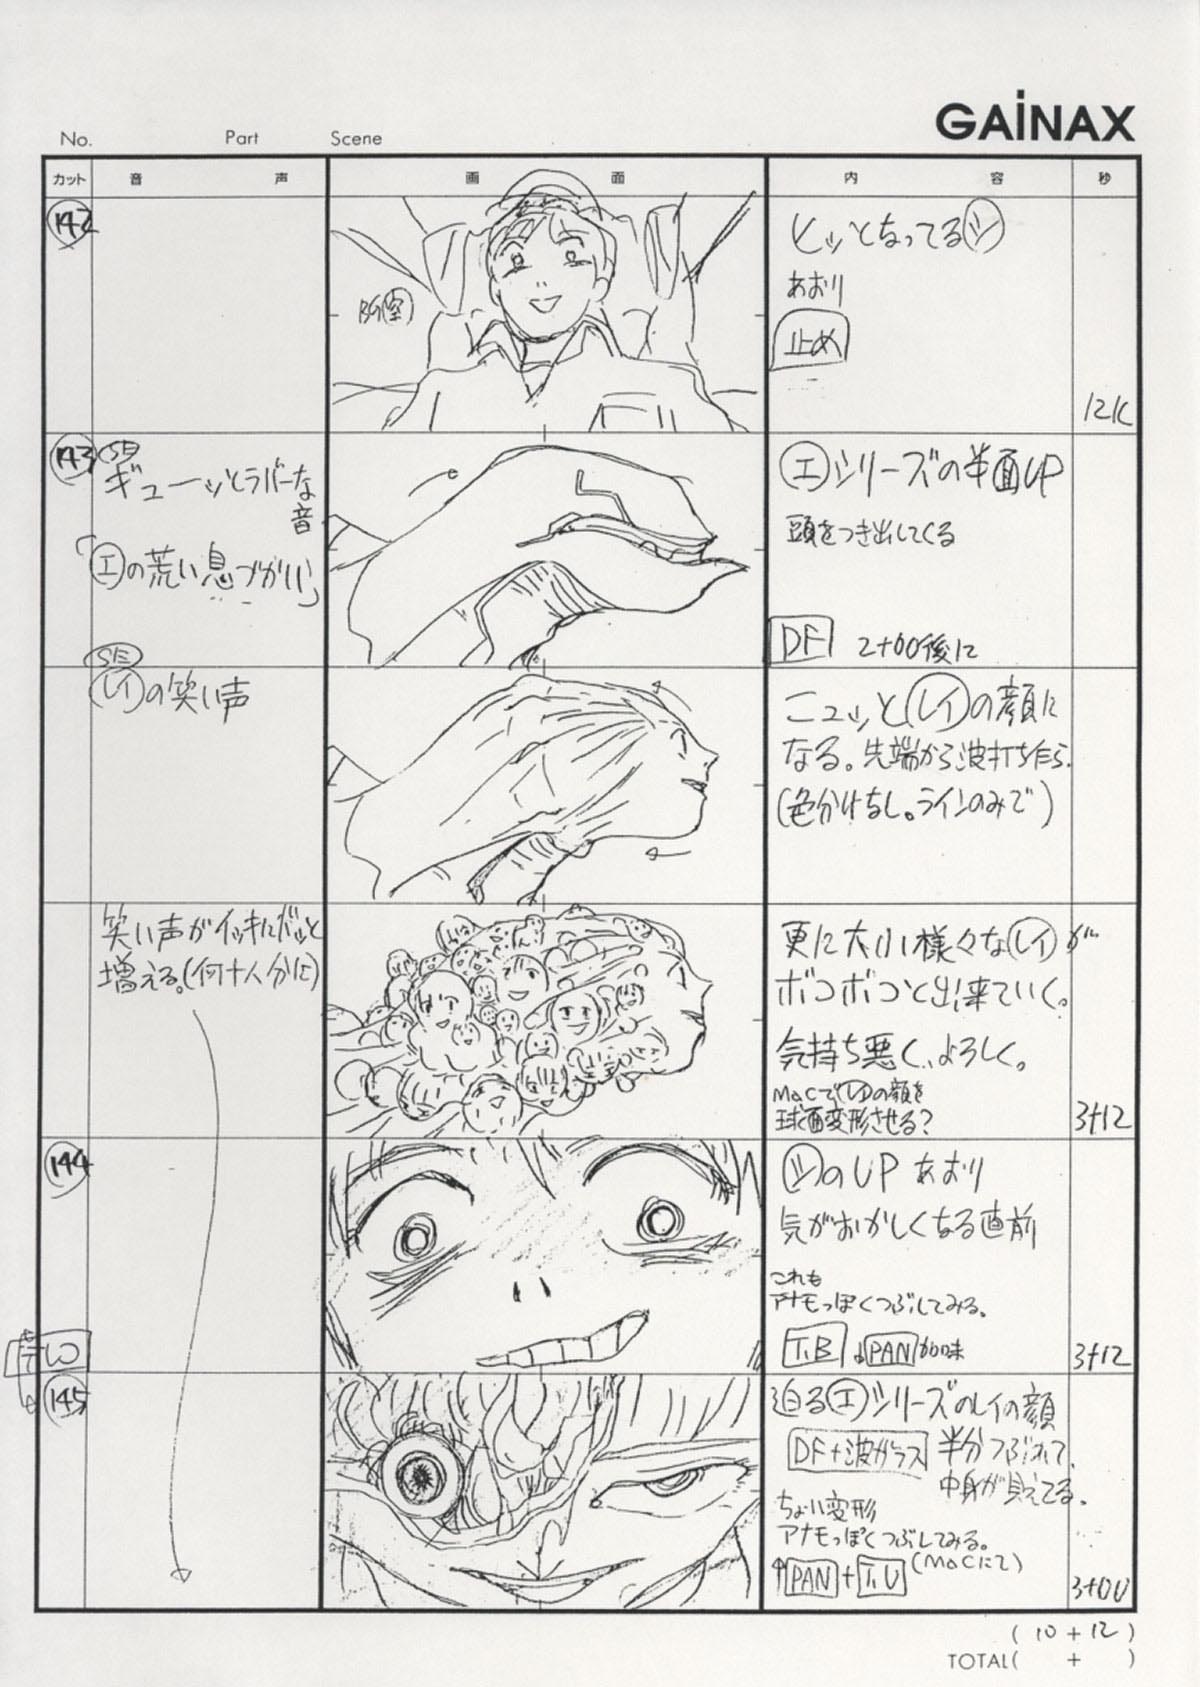 GAiNAX
No. Part Scene
カット 音声 画面 内容 秒
142
BG(空)
ヒッとなってるシ
あおり
止め
12K
143
SE
ギューッとラバーな
音
「エの荒い息づかい」
エシリーズの半面UP
頭をつき出してくる
DF 2+00後に
SE
レイの笑い声
ニュッとレイの顔に
なる。先端から波打ち乍ら。
(色分けなし。ラインのみで)
笑い声がイッキにドッと
増える。(何十人分に)
更に大小様々なレイが
ボコボコと出来ていく。
気持ち悪く、よろしく。
MaCでレイの顔を
球面変形させる?
3+12
144
シのUP あおり
気がおかしくなる直前
これも
アナモっぽくつぶしてみる。
T.B ↓PAN加味
3+12
145
迫るエシリーズのレイの顔
DF+波ガラス 半分つぶれて、
中身が見えてる。
ちょい変形
アナモっぽくつぶしてみる。
(MaCにて)
↑PAN+T.U
3+00
(10+12)
TOTAL( + )